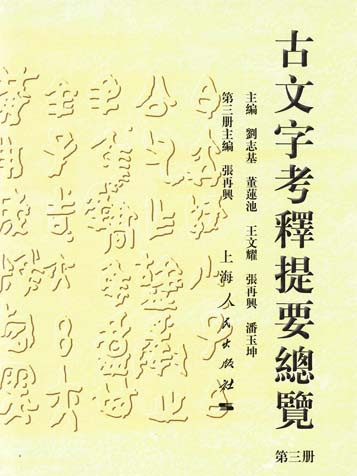 古文字考釋提要總覽
第三册
主編 劉志基 董蓮池 王文耀 張再興 潘玉坤
第三册主編 張再興
上海人民出版社